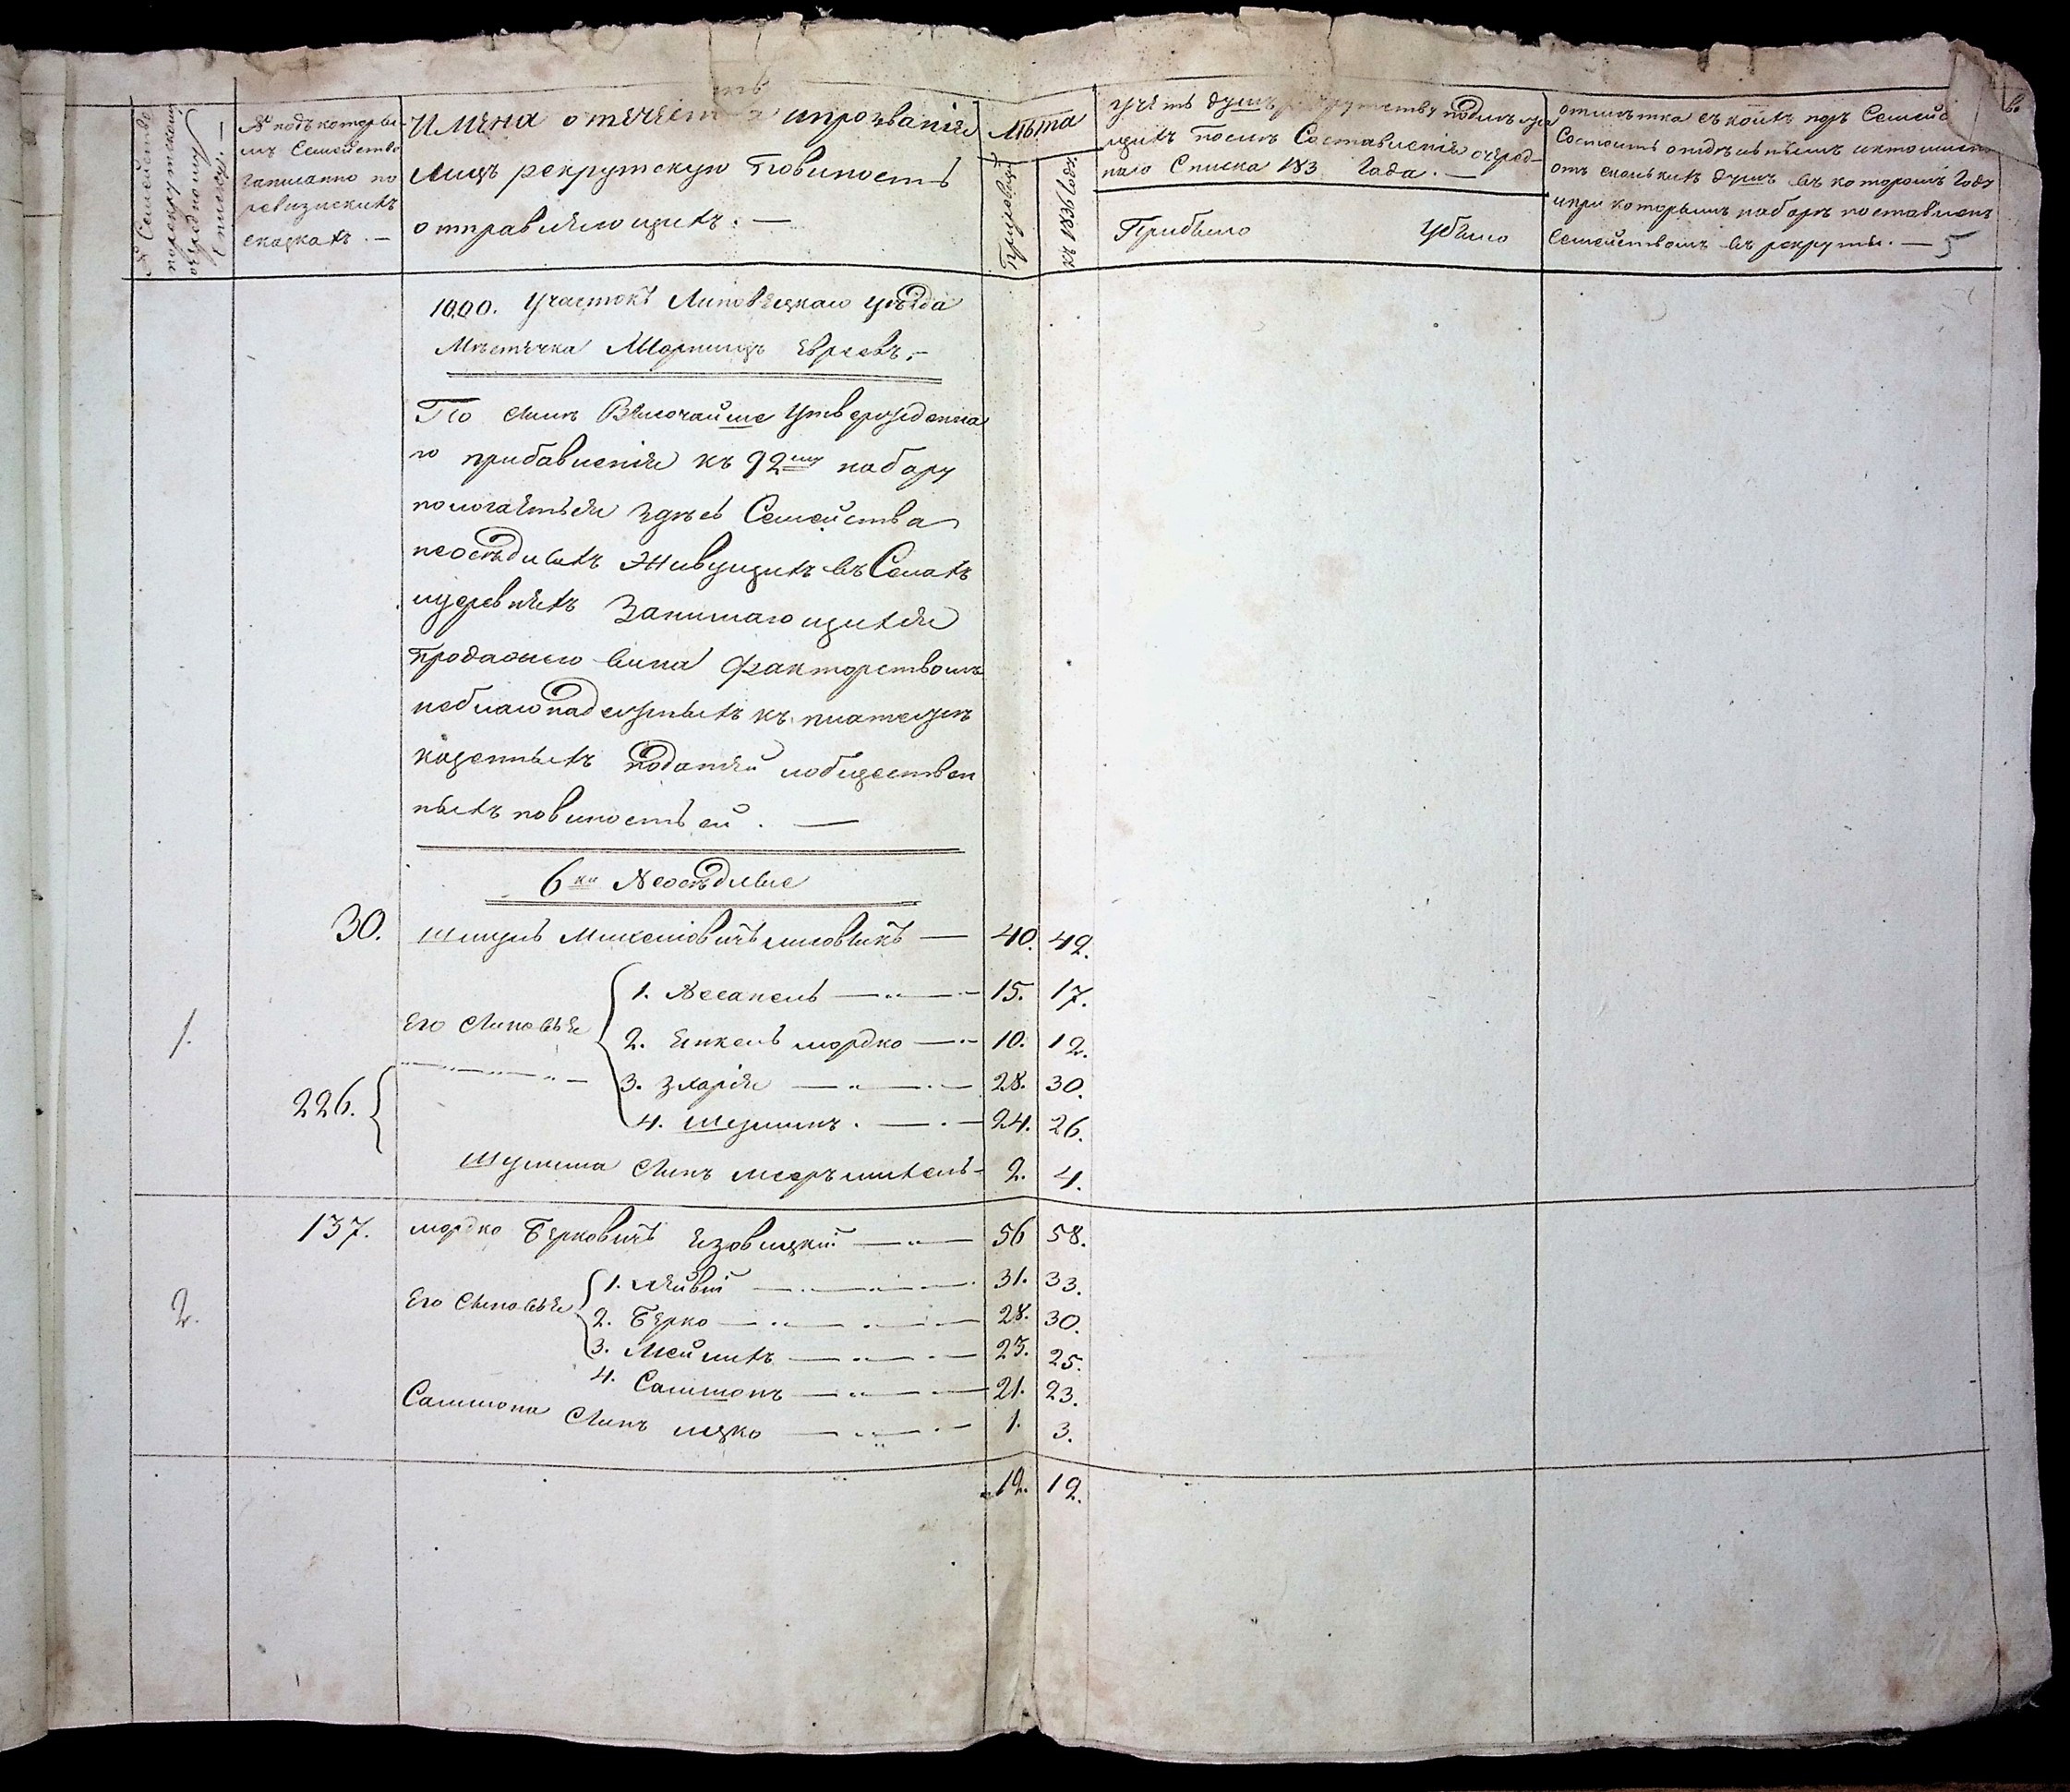 № Семейства
по рекрутскому
очередному
Списку. —
№ подъ которы-
мъ Семейство
записанно по
ревизскихъ
сказкахъ. —
Имѣна отечеств и прозванія
лицъ рекрутскую Повиность
отправляющихъ. —
Лѣта
Прошлогод
къ 1839 году
Учетъ душъ рекрутству подлежа
щихъ Послѣ Составленія очеред-
наго Списка 183 Года. —
Прибыло
Убыло
отмѣтка съ коихъ поръ Семейс во
Состоитъ отдѣльнымъ и кто имено
отъ сколькихъ душъ въ которомъ Году
и при которымъ наборѣ поставленъ
Семействомъ въ рекруты. — 5
1000. Участокъ Липовецкаго уѣзда
Мѣстечка Шорницъ Евреевъ. —
По силѣ Высочайше Утвержденна
го прибавленія къ 92му набору
пологаеться здѣсь Семейства
неосѣдлыхъ Живущихъ въ Селахъ
и деревняхъ Занимающихся
продажею вина факторствомъ
неблагонадежныхъ къ платежу
казенныхъ податей и обществен
ныхъ повиностьей. —
6ти Неосѣдлые
30. Шмуль Микелиовичъ — 40. 42.
1. Его Сыновья 1. Несанель — 15. 17.
2. Янкель мордко — 10. 12.
3. Зхарія — 28. 30.
226. 4. Шулимъ. — 24. 26.
Шулима Сынъ меерь михель — 2. 4.
137. мордко Берковичъ Язовицкий — 56 58.
2. Его Сыновья 1. Лейви — 31. 33.
2. Берко — 28. 30.
3. Мейлихъ — 23. 25.
4. Самшонъ — 21. 23.
Самшона Сынъ ицко — 1. 3.
12. 12.